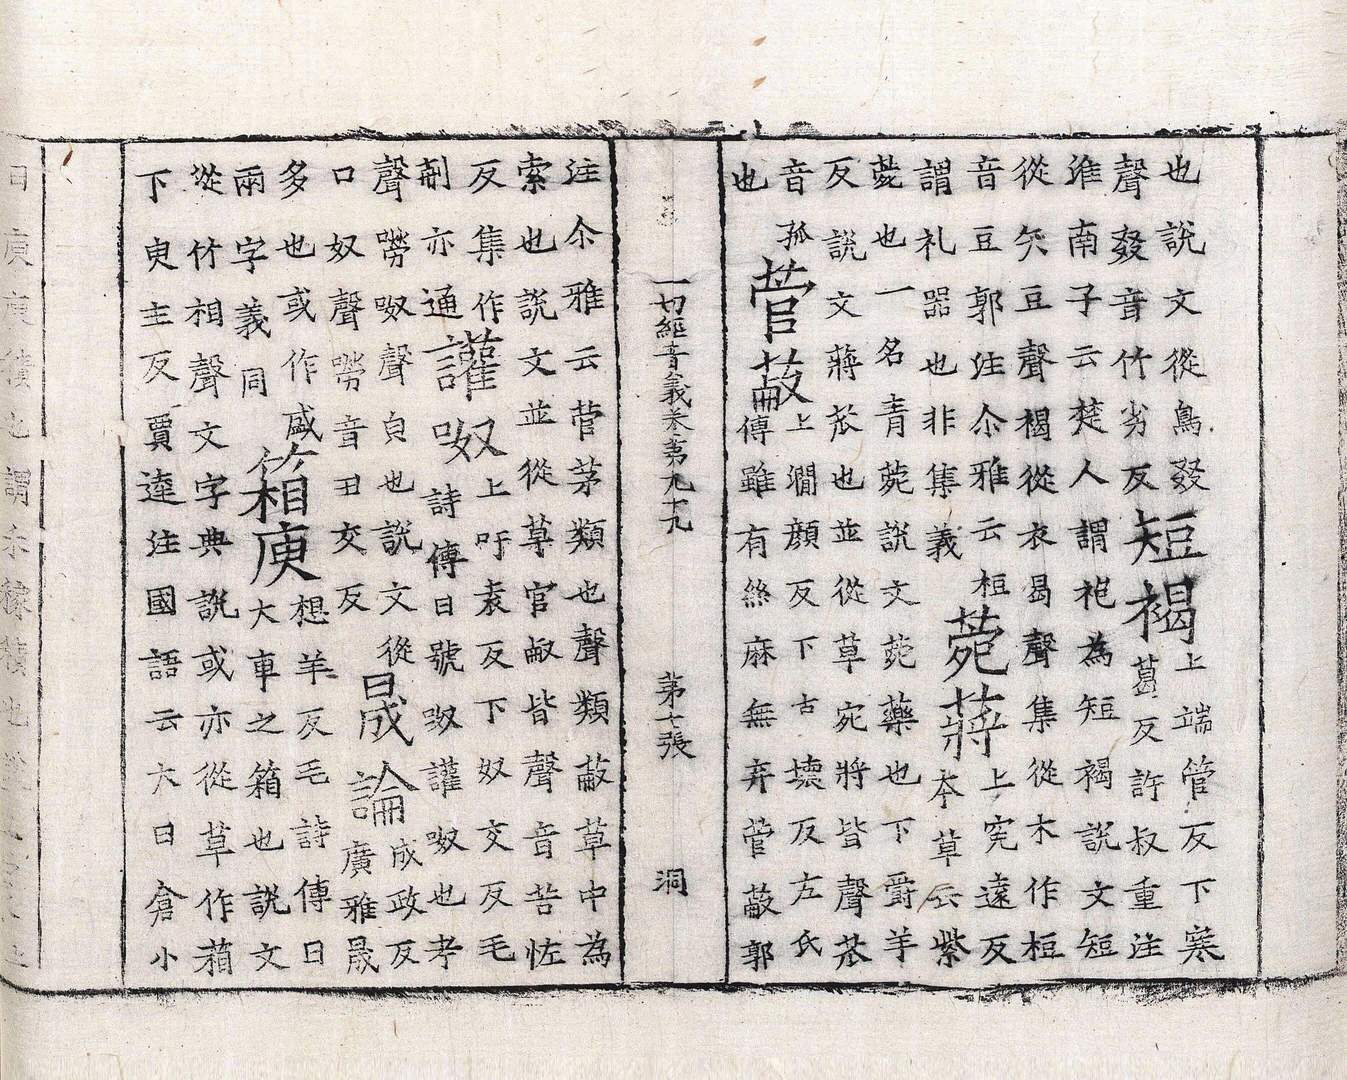 也說文從鳥叕
聲叕音竹劣反
短褐
上端管反下寒
葛反許叔重注
淮南子云楚人謂袍為短褐說文短
從矢豆聲褐從衣曷聲集從木作梪
音豆郭注尒雅云梪
謂礼器也非集義
菀蔣
上冤遠反
本草云紫
菀也一名青菀說文菀藥也下爵羊
反說文蔣苽也並從草宛將皆聲苽
音孤
也
菅蒯
上澗顔反下古壞反左氏
傳雖有絲麻無弃菅蒯郭
一切經音義卷第九十九 第七張 洞
注尒雅云菅茅類也聲類蒯草中為
索也說文並從草官㕟皆聲音苦怪
反集作
蒯亦通
讙呶
上吁袁反下奴交反毛
詩傳曰號呶讙呶也考
聲嘮呶聲㒵也說文從
口奴聲嘮音丑交反
晟論
成政反
廣雅晟
多也或作盛
兩字義同
箱庾
想羊反毛詩傳曰
大車之箱也說文
從竹相聲文字典說或亦從草作葙
下臾主反賈逵注國語云大曰倉小
曰庾庾積也謂禾稼積也